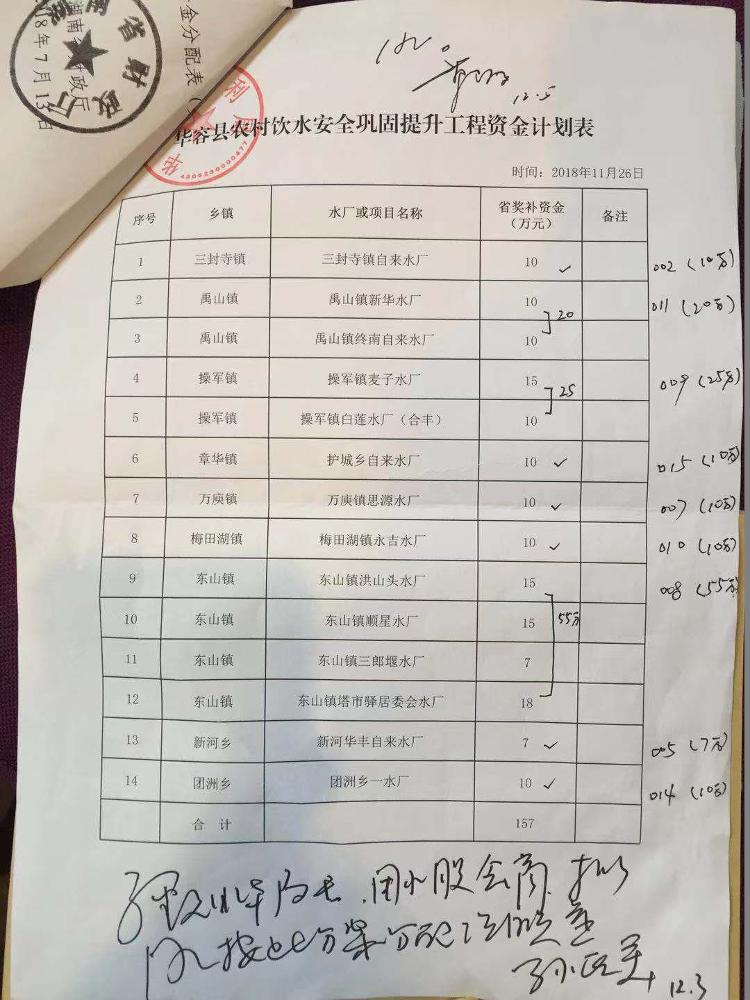 金分配表
湖南省财政厅
18年7月13日
省财政厅
利
华
4306230000477
12.5
华容县农村饮水安全巩固提升工程资金计划表
时间：2018年11月26日
序号 乡镇 水厂或项目名称 省奖补资金（万元） 备注
1 三封寺镇 三封寺镇自来水厂 10 ✓ 002（10万）
2 禹山镇 禹山镇新华水厂 10 011（20万）
20
3 禹山镇 禹山镇终南自来水厂 10
4 操军镇 操军镇麦子水厂 15 009（25万）
25
5 操军镇 操军镇白莲水厂（合丰） 10
6 章华镇 护城乡自来水厂 10 ✓ 015（10万）
7 万庾镇 万庾镇思源水厂 10 ✓ 007（10万）
8 梅田湖镇 梅田湖镇永吉水厂 10 ✓ 010（10万）
9 东山镇 东山镇洪山头水厂 15 008（55万）
10 东山镇 东山镇顺星水厂 15 55万
11 东山镇 东山镇三郎堰水厂 7
12 东山镇 东山镇塔市驿居委会水厂 18
13 新河乡 新河华丰自来水厂 7 ✓ 005（7万）
14 团洲乡 团洲乡一水厂 10 ✓ 014（10万）
合计 157
股会商 拟
按此方案分配
12.3